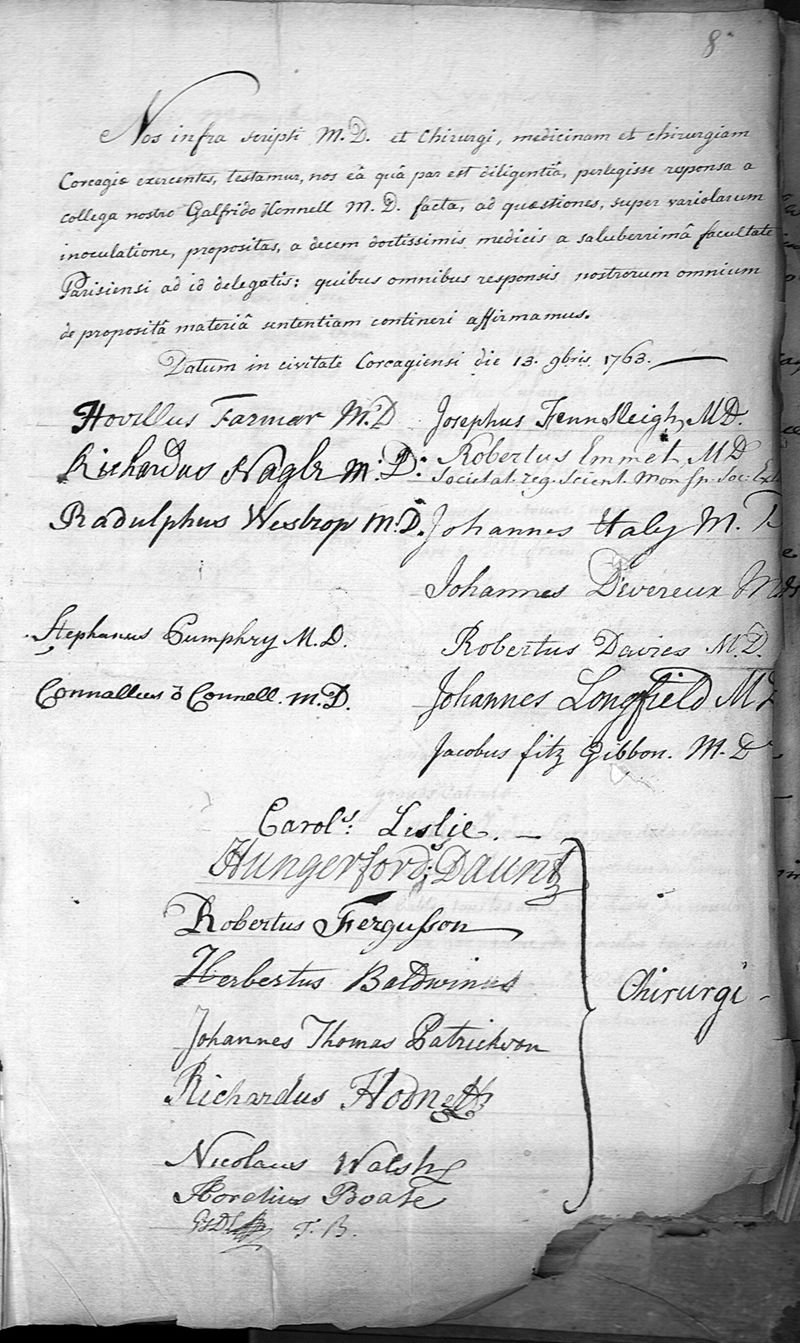 8
Nos infra scripti M.D. et Chirurgi, medicinam et chirurgiam
Corcagiæ exercentes, testamur, nos eâ quâ par est diligentiâ, perlegisse responsa a
collega nostro Galfrido Connell M.D. facta, ad quæstiones, super variolarum
inoculatione, propositas, a decem doctissimis medicis a saluberrimâ facultate
Parisiensi ad id delegatis: quibus omnibus responsis nostrorum omnium
de propositâ materiâ sententiam contineri affirmamus.
Datum in civitate Corcagiensi die 13. 9bris 1763.
Hovillus Farmar M.D Josephus Fennsleigh, MD.
Richardus Nagle M.D: Robertus Emmet, MD
Societat. reg. Scient. Monsp. Soc.
Radulphus Westrop M.D. Johannes Haly M.
Johannes Devereux
Stephanus Pumphry M.D. Robertus Davies M.D.
Connallus ô Connell. M.D. Johannes Longfield M
Jacobus fitz Gibbon. M.D
Carols. Leslie.
Hungerfords Daunt
Robertus Fergusson
Herbertus Baldwinus Chirurgi
Johannes Thomas Patrickson
Richardus Hodnett
Nicolaus Walsh
Horatius Boate
T. B.